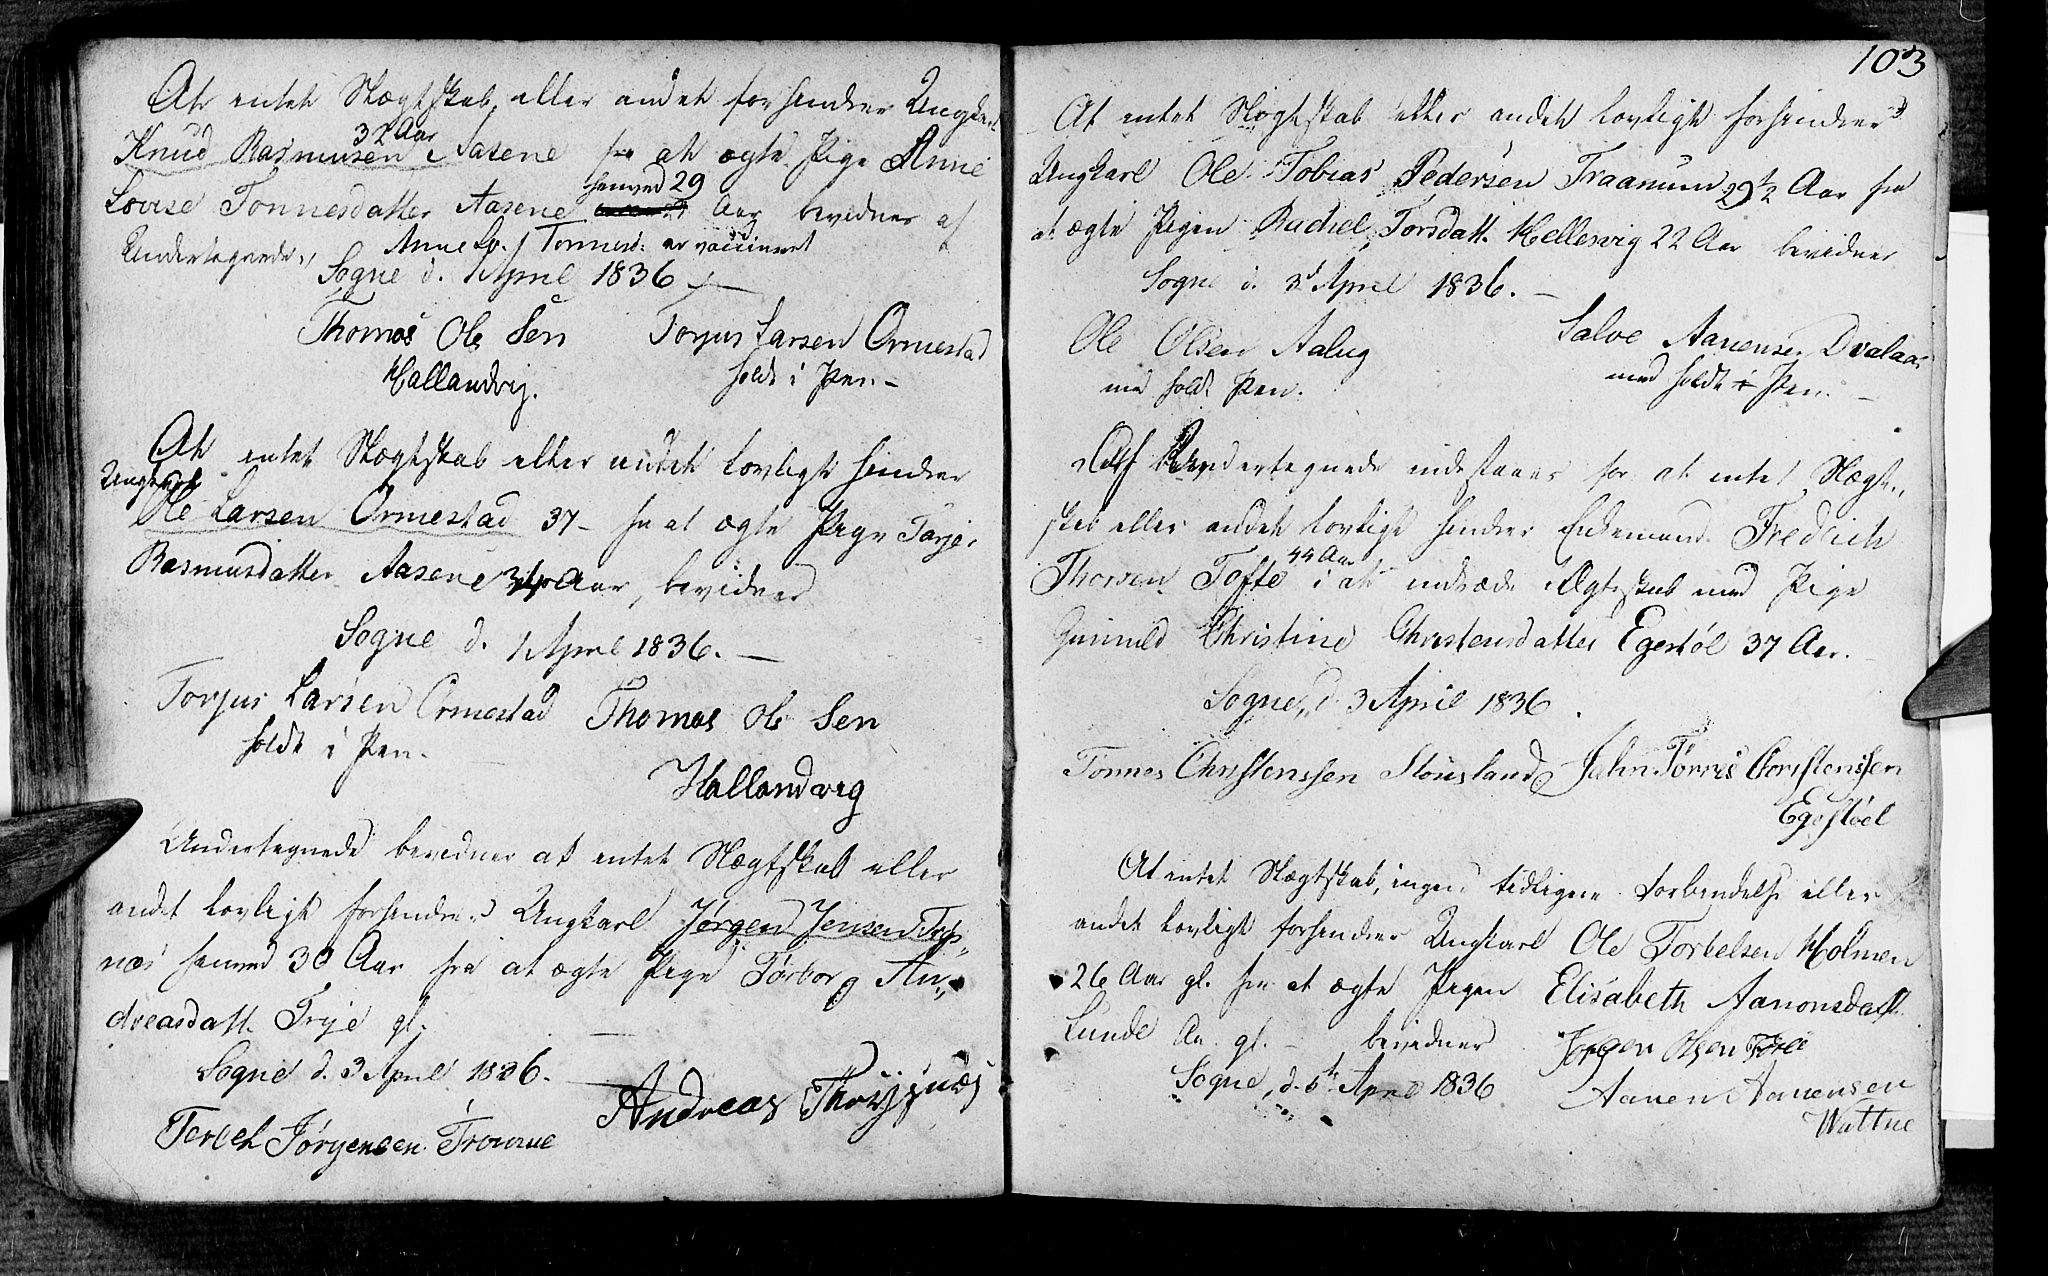 At intet Slægtskab eller andet forhindrer Ungkarl
32 Aar
Knud Rasmusen Aasene fra at ægte Pige Anne
henved 29
Lovise Tønnesdatter Aasene Aar bevidner af
Undertegnede.
Anne Lo. Tønnesd. er vaccineret
Sogne d. 1 April 1836
Thomas Ole Sen Torjus Larsen Ormestad
Hallandvig. holdt i Pen
At intet Slægtskab eller andet lovligt hindrer
Ungkarl
Ole Larsen Ormestad 37 fra at ægte Pige Tarje
Rasmusdatter Aasene 34 Aar, bevidner
Sogne d. 1 April 1836.
Torjus Larsen Ormestad Thomas Ole Sen
holdt i Pen.
Hallandvig
Undertegnede bevidner at intet Slægtskab eller
andet lovligt forhindrer Ungkarl Jørgen Jensen
næs henved 30 Aar fra at ægte Pige Tørborg An-
dreasdatt. Trye gl.
Sogne d. 3 April 1836.
Andreas Thorysnæs
Terkel Jørgensen Trousne
103
At intet Slægtskab eller andet lovligt forhindrer
Ungkarl Ole Tobias Pedersen Traanum 29 1/2 Aar fra
at ægte Pigen Rachel Torsdatt. Hellesvig 22 Aar bevidner
Sogne d. 3d April 1836.
Ole Olsen Aalug Salve Aanensen Dvalaas
med holdt Pen. med holdt i Pen.
Undertegnede indestaaer for at intet Slægt-
skab eller andet lovligt hindrer Enkemand Fredrich
44 Aar
Thorsen Tofte i at indtræde i Ægteskab med Pige
Gunnild Christine Christensdatter Egestøl 37 Aar.
Sogne, d. 3 April 1836.
Tønnes Christenssen Stousland Jahn Tørris Cristenssen
Egestøel
At intet Slægtskab, ingen tidligere Forbindelse eller
andet lovligt forhindrer Ungkarl Ole Torkelsen Holmen
26 Aar gl. fra at ægte Pigen Elisabeth Aanonsdatt.
Lunde Aar gl. bevidner Jørgen Olsen
Sogne, d. 5te April 1836 Aanen Aanensen
Wattne